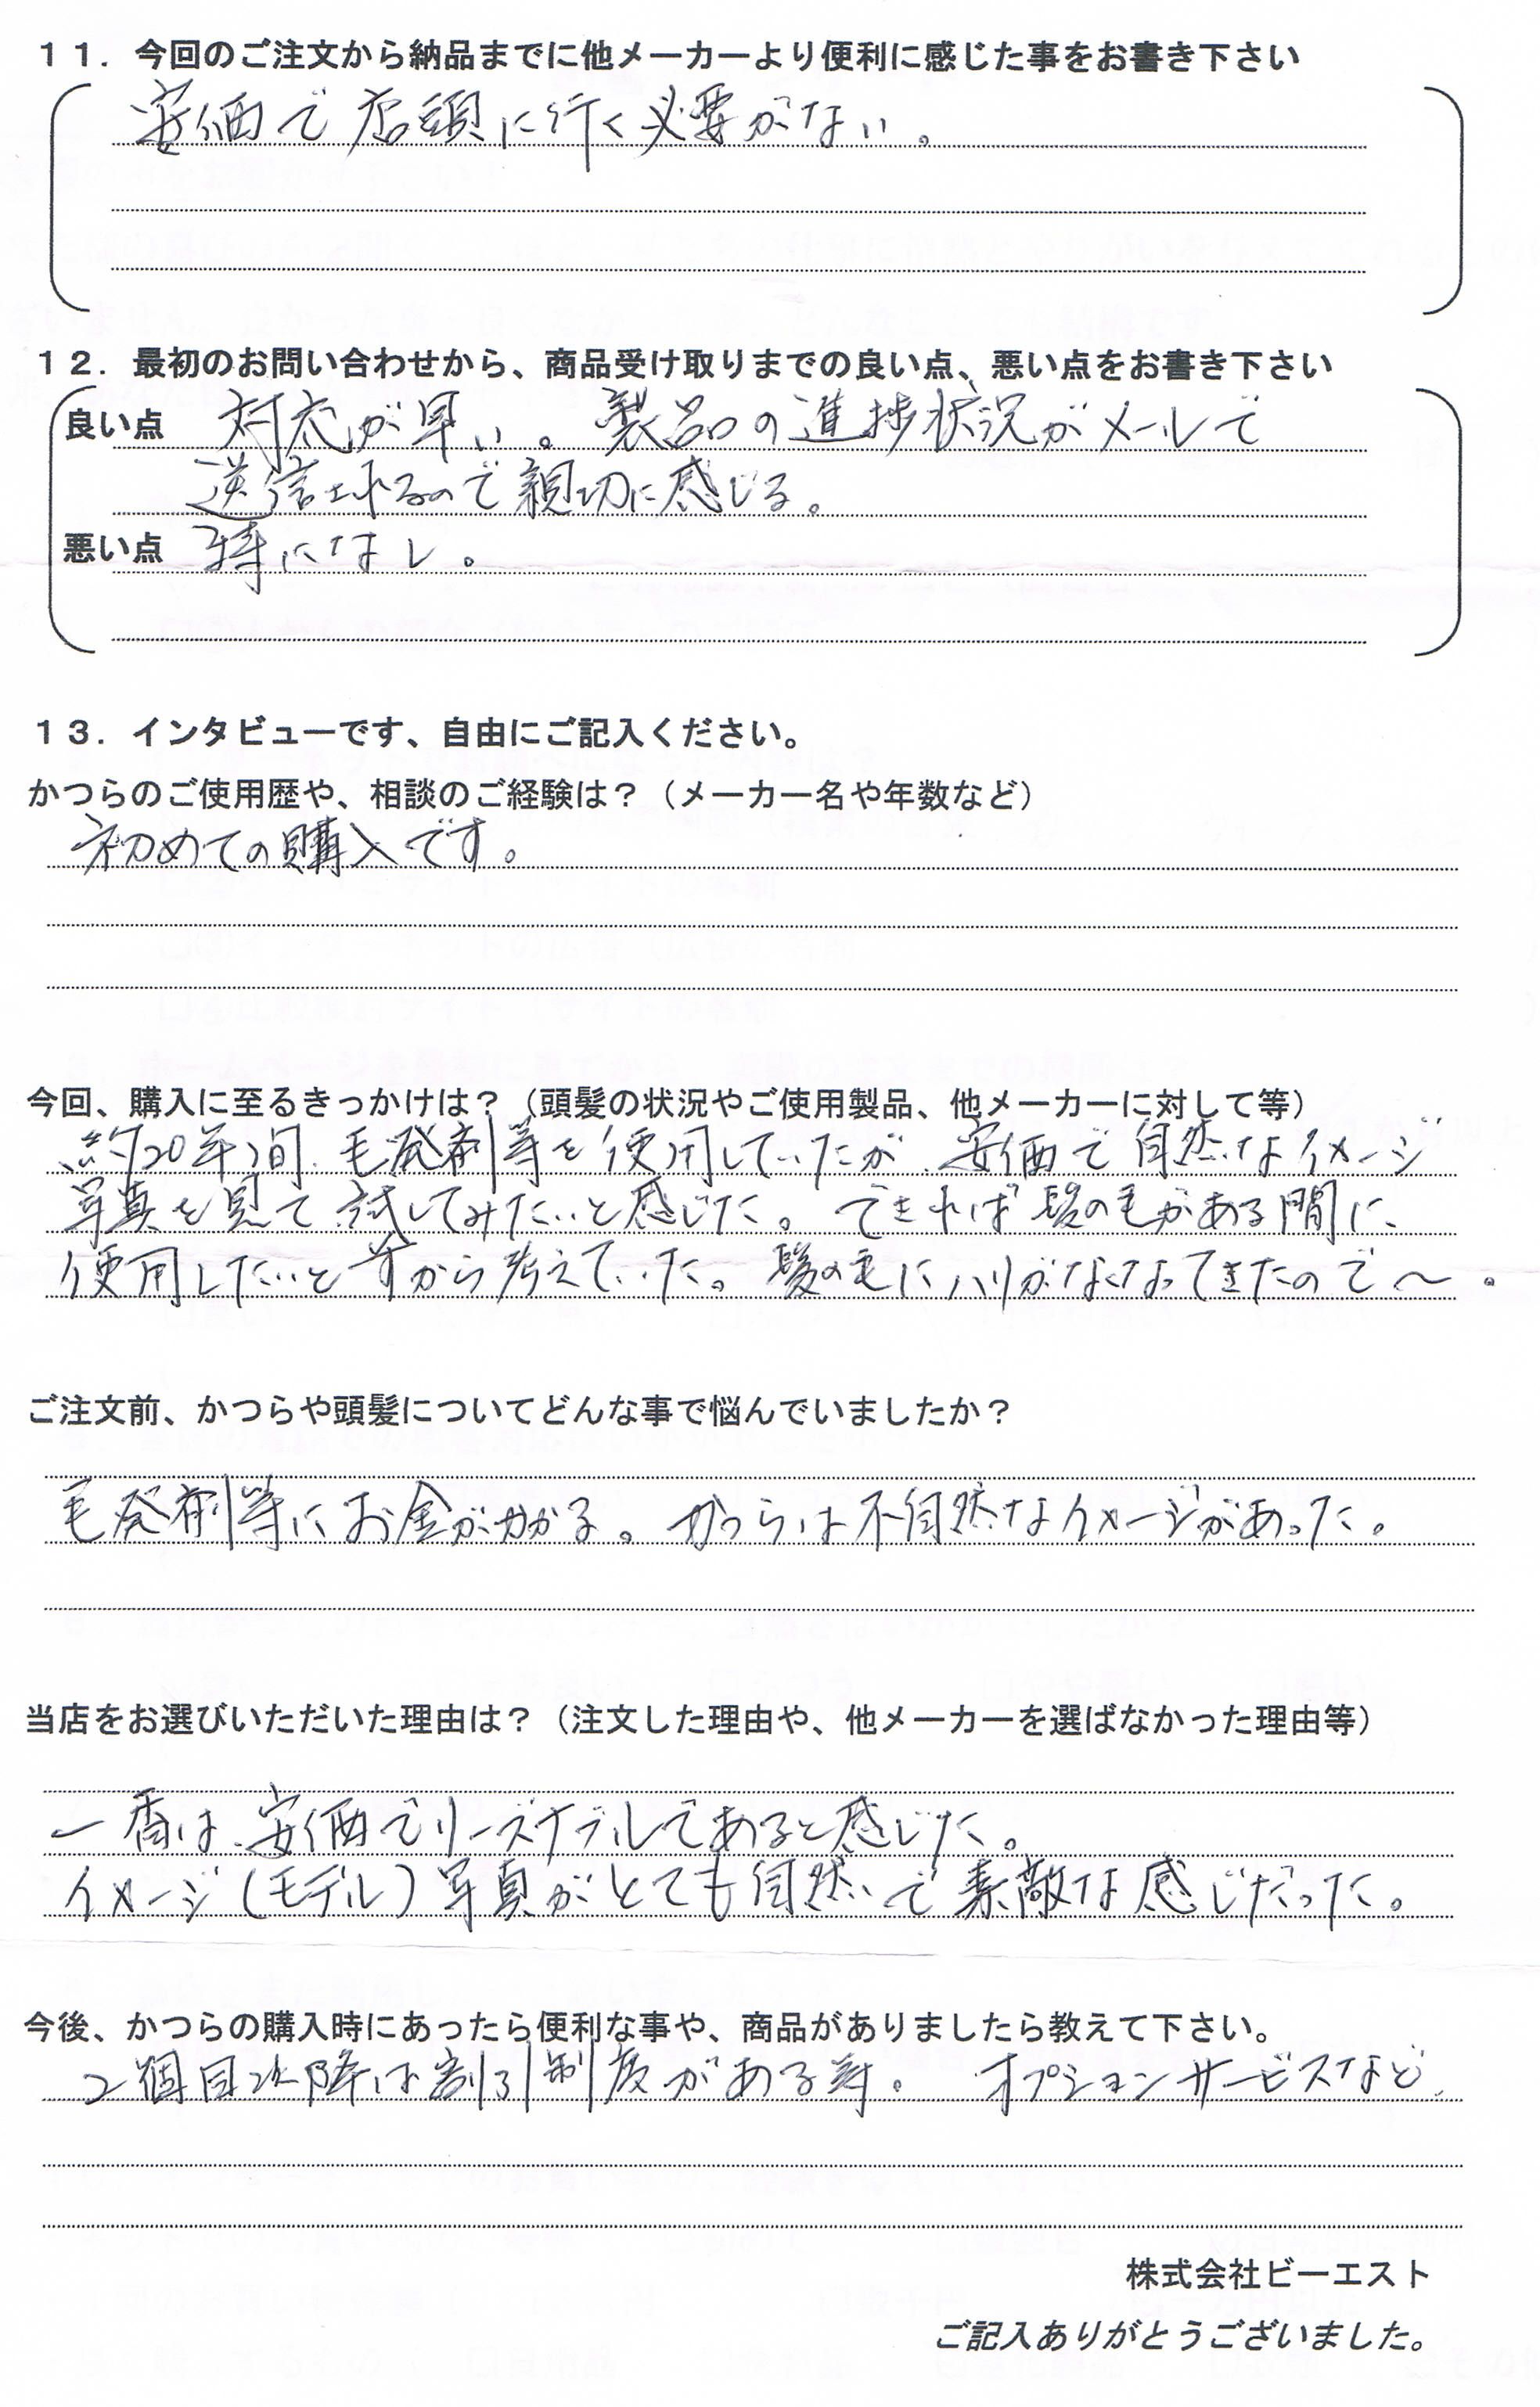 １１．今回のご注文から納品までに他メーカーより便利に感じた事をお書き下さい
安価で店頭に行く必要がない。
１２．最初のお問い合わせから、商品受け取りまでの良い点、悪い点をお書き下さい
良い点 対応が早い。製品の進捗状況がメールで
送信されるので親切に感じる。
悪い点 特になし。
１３．インタビューです、自由にご記入ください。
かつらのご使用歴や、相談のご経験は？（メーカー名や年数など）
初めての購入です。
今回、購入に至るきっかけは？（頭髪の状況やご使用製品、他メーカーに対して等）
約20年間、毛発剤等を使用していたが、安価で自然なイメージ
写真を見て試してみたいと感じた。できれば髪の毛がある間に、
使用したいと前から考えていた。髪の毛にハリがなくなってきたので〜。
ご注文前、かつらや頭髪についてどんな事で悩んでいましたか？
毛発剤等にお金がかかる。かつらは不自然なイメージがあった。
当店をお選びいただいた理由は？（注文した理由や、他メーカーを選ばなかった理由等）
一番は、安価でリーズナブルであると感じた。
イメージ（モデル）写真がとても自然で素敵な感じだった。
今後、かつらの購入時にあったら便利な事や、商品がありましたら教えて下さい。
2個目以降は割引制度がある等。 オプションサービスなど、
株式会社ビーエスト
ご記入ありがとうございました。